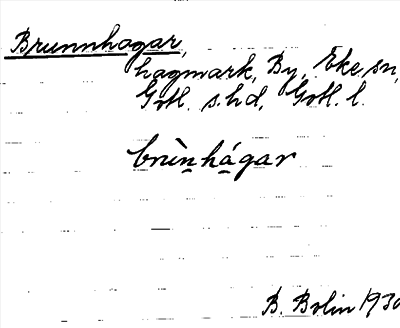 Brunnhagar,
hagmark, By, Eke sn,
Gotl. s. hd, Gotl. l.
brùn̲há̲gar
B. Bolin 1930